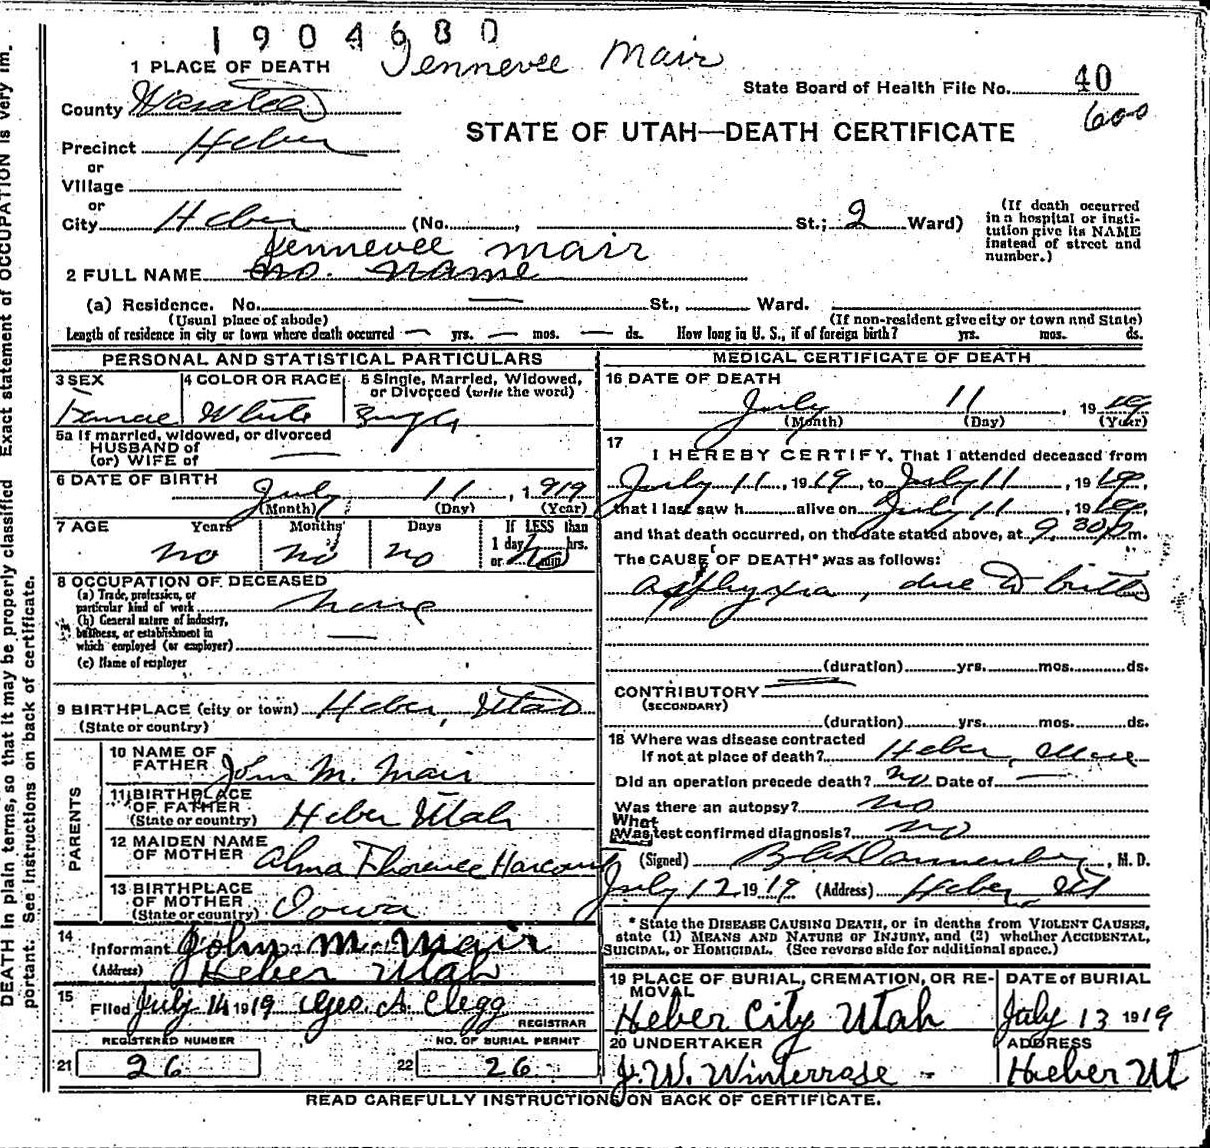 1904680
Jennevee Mair
1 PLACE OF DEATH
State Board of Health File No. 40
600
County Wasatch
STATE OF UTAH—DEATH CERTIFICATE
Precinct Heber
or
Village
or
City Heber (No. , St.; 2 Ward)
(If death occurred in a hospital or institution give its NAME instead of street and number.)
Jennevee Mair
2 FULL NAME no. name
(a) Residence. No. — St., Ward.
(Usual place of abode) (If non-resident give city or town and State)
Length of residence in city or town where death occurred — yrs. — mos. — ds. How long in U. S., if of foreign birth? yrs. mos. ds.
PERSONAL AND STATISTICAL PARTICULARS
3 SEX Female
4 COLOR OR RACE White
5 Single, Married, Widowed, or Divorced (write the word) Single
5a If married, widowed, or divorced
HUSBAND of
(or) WIFE of —
6 DATE OF BIRTH July 11, 1919
(Month) (Day) (Year)
7 AGE Years Months Days If LESS than
1 day, hrs.
or min
no no no no
8 OCCUPATION OF DECEASED
(a) Trade, profession, or
particular kind of work none
(b) General nature of industry,
business, or establishment in
which employed (or employer) —
(c) Name of employer
9 BIRTHPLACE (city or town) Heber, Utah
(State or country)
PARENTS
10 NAME OF
FATHER John M. Mair
11 BIRTHPLACE
OF FATHER
(State or country) Heber Utah
12 MAIDEN NAME
OF MOTHER Alma Florence Harcourt
13 BIRTHPLACE
OF MOTHER
(State or country) Iowa
14 Informant John M. Mair
(Address) Heber Utah
15 Filed July 14 1919 Geo. A. Clegg
REGISTRAR
REGISTERED NUMBER NO. OF BURIAL PERMIT
21 26 22 26
MEDICAL CERTIFICATE OF DEATH
16 DATE OF DEATH
July 11, 1919
(Month) (Day) (Year)
17
I HEREBY CERTIFY, That I attended deceased from
July 11, 1919, to July 11, 1919,
that I last saw h alive on July 11, 1919,
and that death occurred, on the date stated above, at 9 30 m.
The CAUSE OF DEATH* was as follows:
Asphyxia, due to birth
(duration) yrs. mos. ds.
CONTRIBUTORY —
(SECONDARY)
(duration) yrs. mos. ds.
18 Where was disease contracted
If not at place of death? Heber,
Did an operation precede death? no Date of —
Was there an autopsy? no
What
Was test confirmed diagnosis? no
(Signed) Dannenberg, M. D.
July 12 1919 (Address) Heber, Ut
* State the DISEASE CAUSING DEATH, or in deaths from VIOLENT CAUSES,
state (1) MEANS AND NATURE OF INJURY, and (2) whether ACCIDENTAL,
SUICIDAL, or HOMICIDAL. (See reverse side for additional space.)
19 PLACE OF BURIAL, CREMATION, OR REMOVAL
Heber City Utah
DATE of BURIAL
July 13 1919
20 UNDERTAKER
J. W. Winterrose -
ADDRESS
Heber Ut
READ CAREFULLY INSTRUCTIONS ON BACK OF CERTIFICATE.
DEATH in plain terms, so that it may be properly classified Exact statement of OCCUPATION is very im.
portant. See instructions on back of certificate.